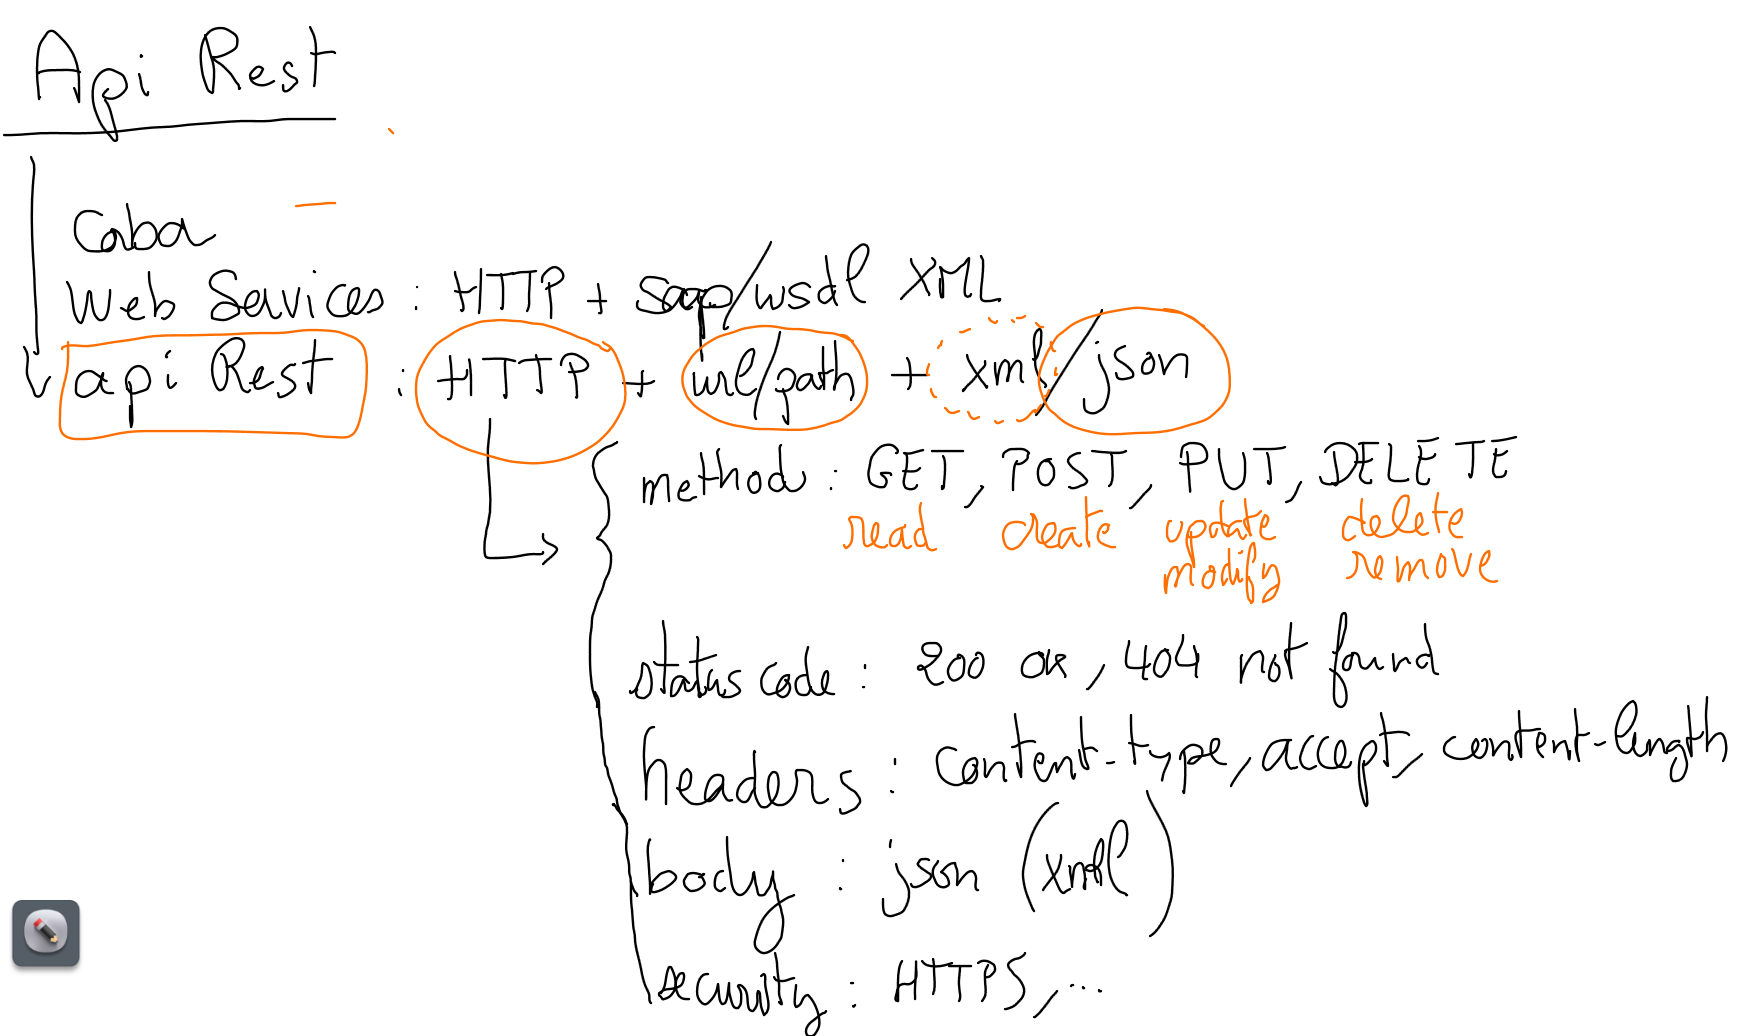 Api Rest
Coba
Web Services : HTTP + soap/wsdl XML
api Rest : HTTP + url/path + xml/json
method : GET, POST, PUT, DELETE
read create update delete
modify remove
status code : 200 ok, 404 not found
headers : content-type, accept, content-length
body : json (xml)
security : HTTPS, ...